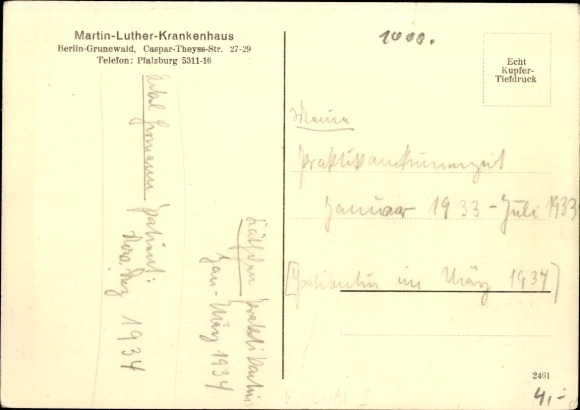 Martin-Luther-Krankenhaus
Berlin-Grunewald, Caspar-Theyss-Str. 27-29
Telefon: Pfalzburg 5311-16
1000.
Echt
Kupfer-
Tiefdruck
Meine
Praktikantinnenzeit
Januar 1933 - Juli 1933
[Patientin im März 1934]
Patient:
1934
Praktikantin
Jan - März 1934
2461
4,-